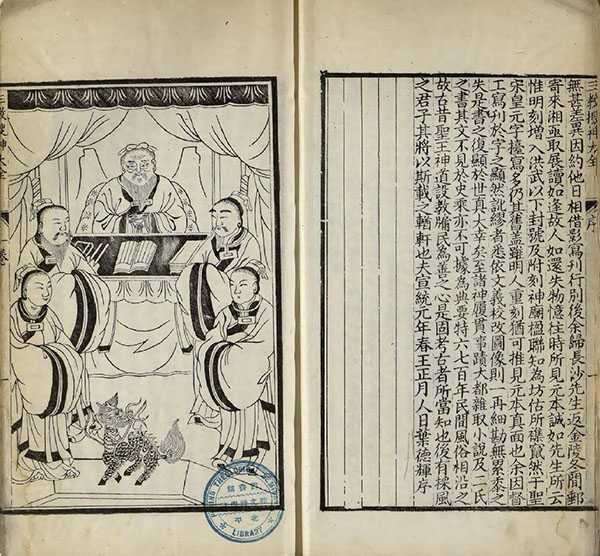 三教搜神大全 序 一
無甚差異因約他日相借影寫刊行別後余歸長沙先生返金陵冬間郵
寄來湘亟取展讀如逢故人如還失物憶往時所見元本誠如先生所云
惟明刻增入洪武以下封號及附刻神廟楹聯知為坊估所羼竄然於聖
宋皇元字擡寫多仍其舊蓋雖明人重刻猶可推見元本真面也余因督
工寫刊於字之顯然訛繆者悉依文義校改圖像則一再細勘無累黍之
失是書之復顯於世真大幸矣至諸神履貫事蹟大都雜取小說及二氏
之書其文不見於史乘亦不可據為典要特六七百年民間風俗相沿之
故古昔聖王神道設教牖民為善之心是固考古者所當知也後有採風
之君子其將以斯載之輶軒也夫宣統元年春王正月人日葉德輝序
三教搜神大全 卷
LIBRARY